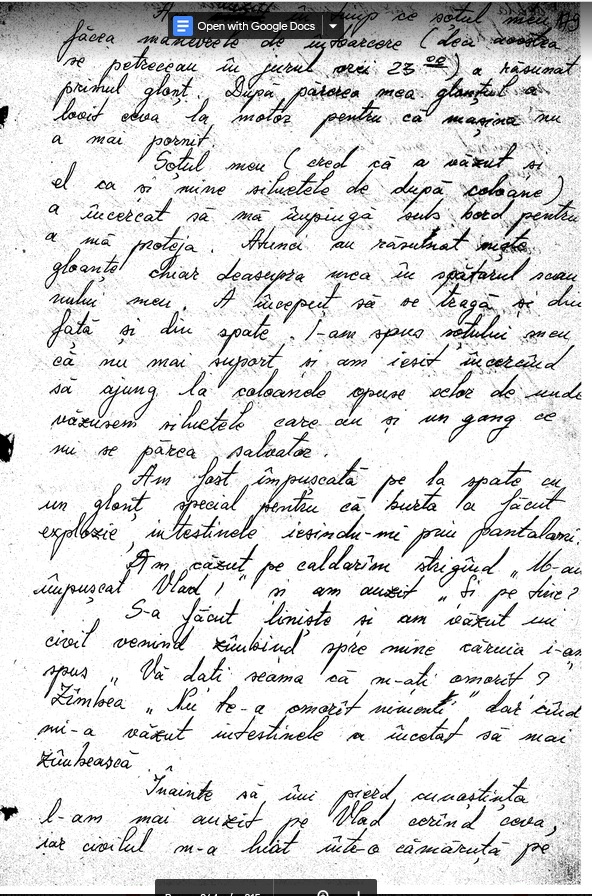 Open with Google Docs
timp ce soțul meu
făcea manevrele de întoarcere (deci acestea
se petreceau în jurul orei 23 00) a răsunat
primul glonț. După părerea mea glonțul a
lovit ceva la motor pentru că mașina nu
a mai pornit.
Soțul meu (cred că a văzut și
el ca și mine siluetele de după coloane)
a încercat să mă împingă sub bord pentru
a mă proteja. Atunci au răsunat niște
gloanțe chiar deasupra mea în spătarul scau
nului meu. A început să se tragă și din
față și din spate. I-am spus soțului meu
că nu mai suport și am ieșit încercînd
să ajung la coloanele opuse celor de unde
văzusem siluetele care au și un gang ce
mi se părea salvator.
Am fost împușcată pe la spate cu
un glonț special pentru că burta a făcut
explozie, intestinele ieșindu-mi prin pantaloni.
Am căzut pe caldarîm strigînd „M-au
împușcat Vlad!" și am auzit „Și pe tine?
S-a făcut liniște și am văzut un
civil venind zîmbind spre mine căruia i-am
spus „Vă dați seama că m-ați omorît?
Zîmbea „Nu te-a omorît nimeni" dar cînd
mi-a văzut intestinele a încetat să mai
zîmbească.
Înainte să îmi pierd cunoștința
l-am mai auzit pe Vlad cerînd ceva,
iar civilul m-a luat într-o cămăruță pe